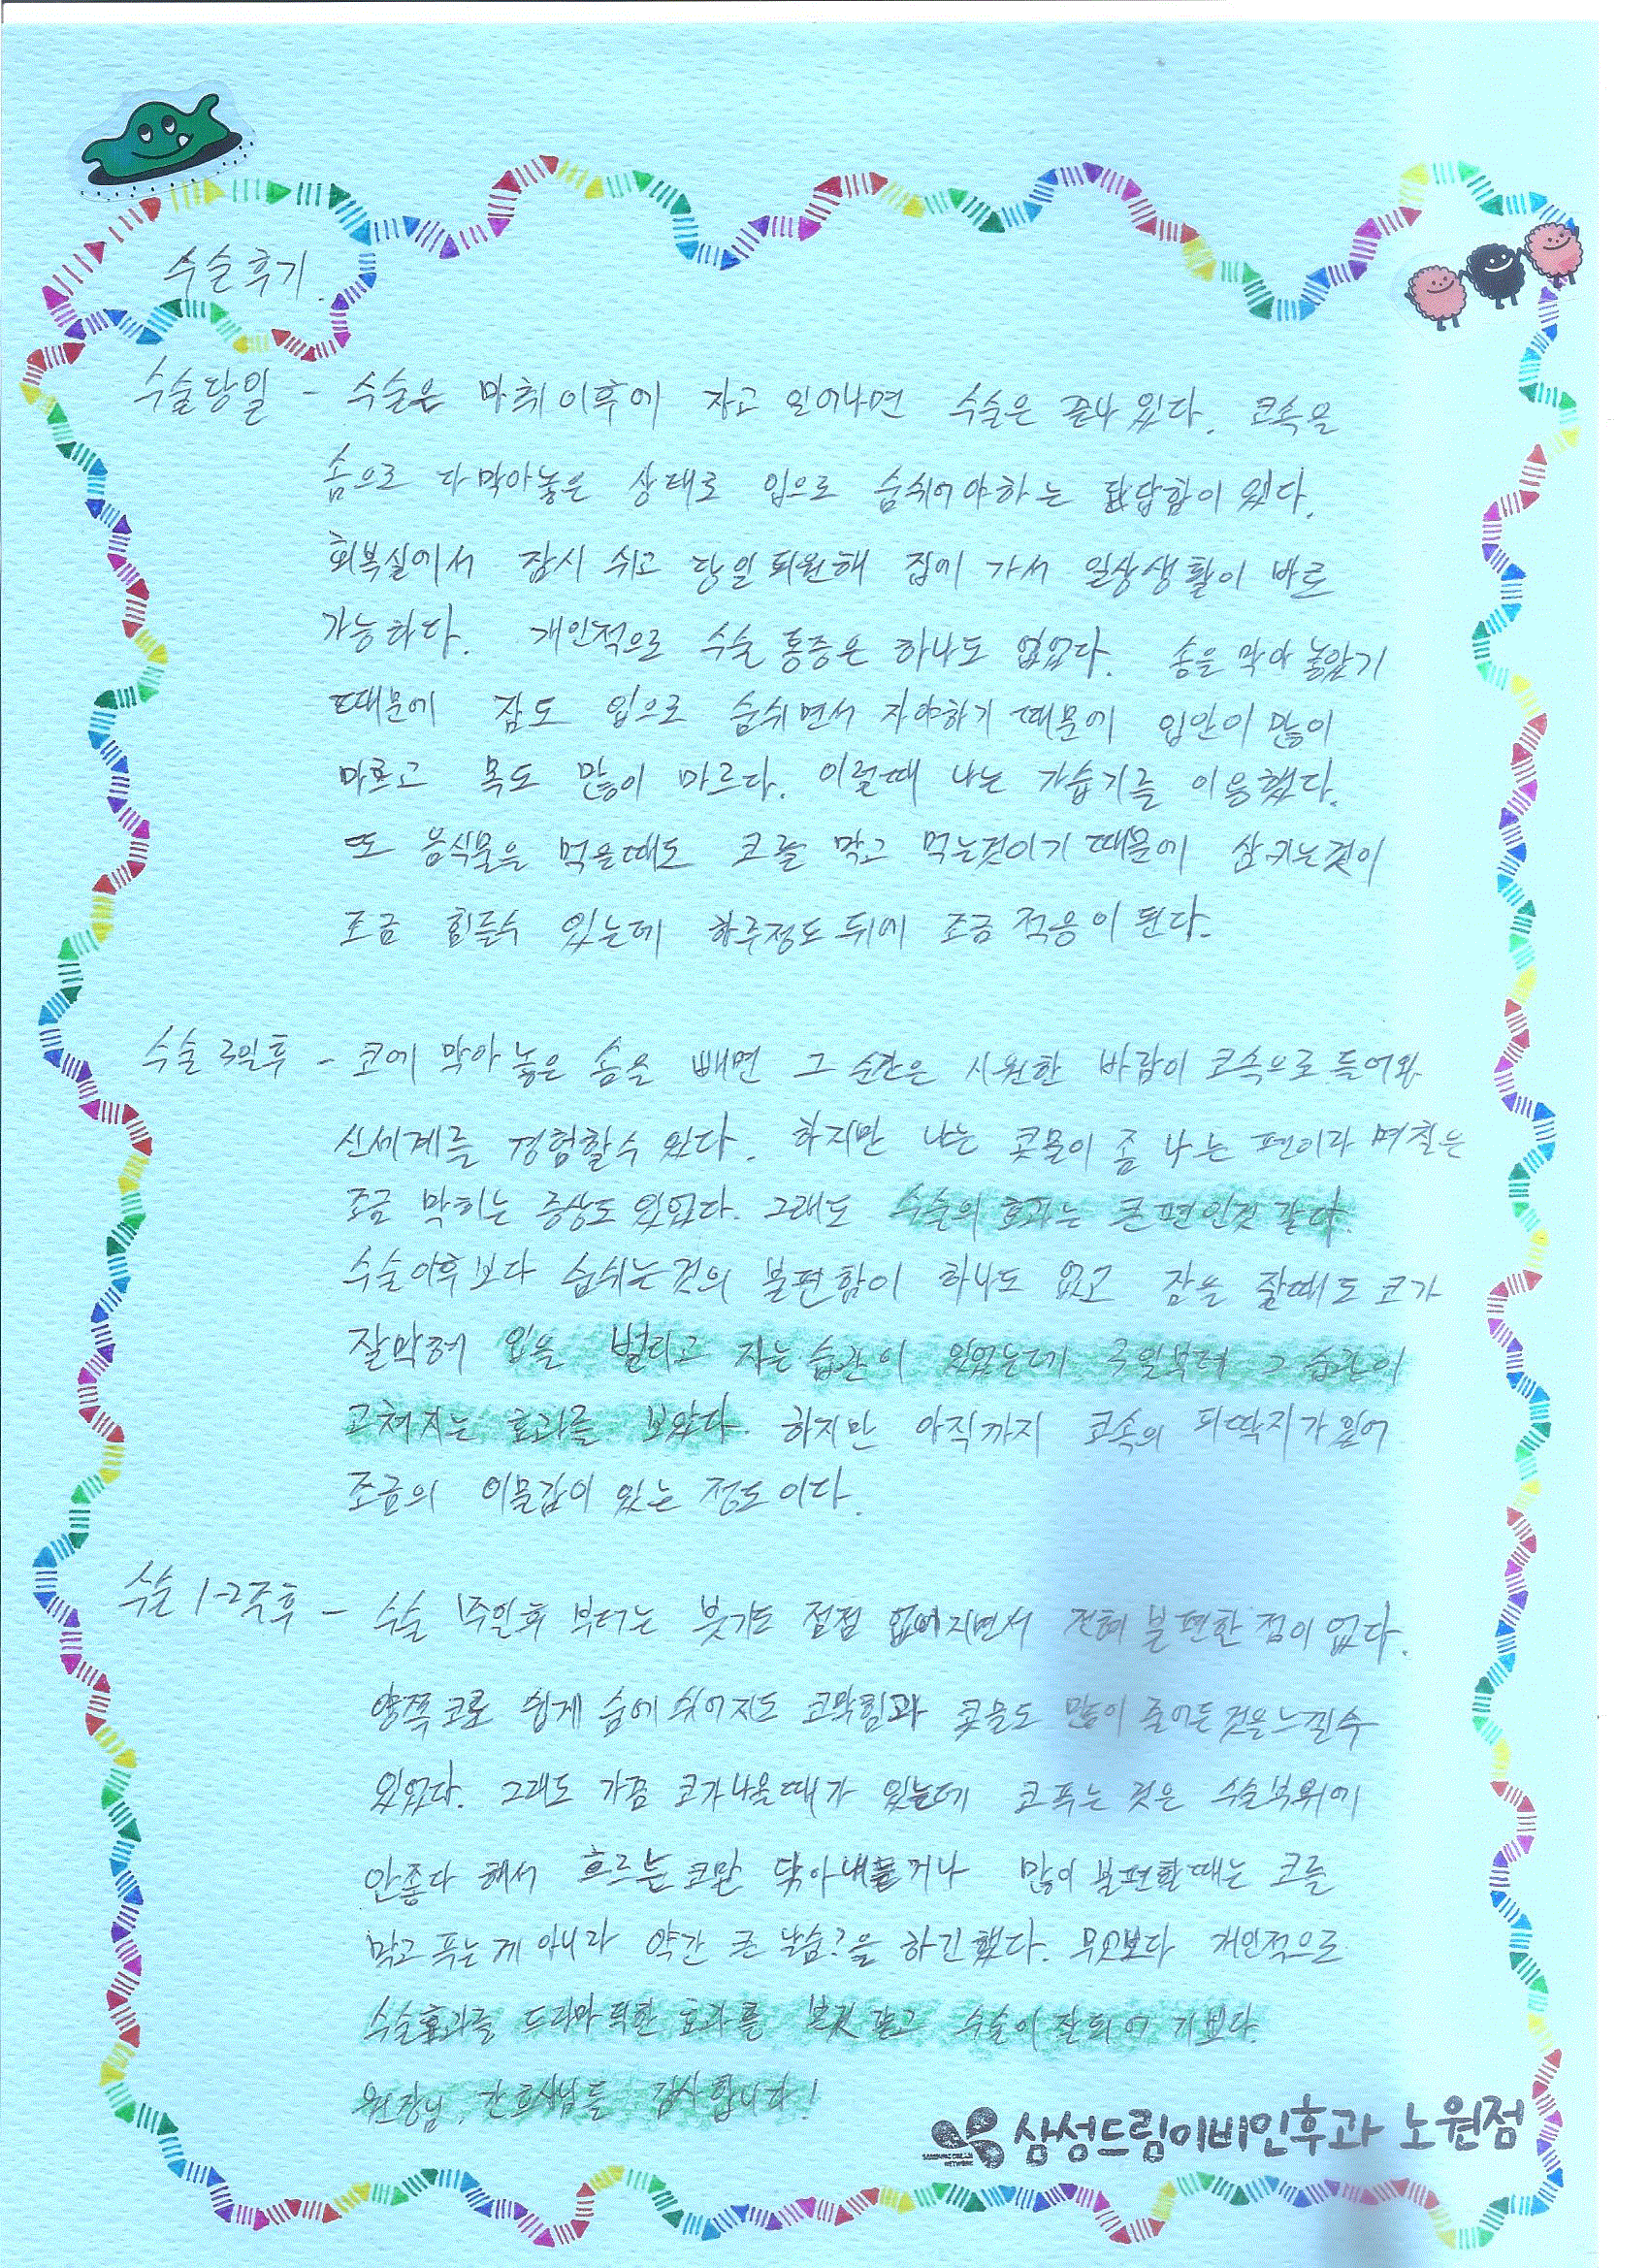 수술후기.
수술당일 - 수술은 마취이후에 자고 일어나면 수술은 끝나있다. 코속을
솜으로 다막아놓은 상태로 입으로 숨쉬어야하는 답답함이 있다.
회복실에서 잠시 쉬고 당일 퇴원해 집에 가서 일상생활이 바로
가능하다. 개인적으로 수술 통증은 하나도 없었다. 솜을 막아 놓았기
때문에 잠도 입으로 숨쉬면서 자야하기 때문에 입안이 많이
마르고 목도 많이 마르다. 이럴때 나는 가습기를 이용했다.
또 음식물을 먹을때도 코를 막고 먹는것이기 때문에 삼키는것이
조금 힘들수 있는데 하루정도 뒤에 조금 적응이 된다.
수술 3일후 - 코에 막아 놓은 솜을 빼면 그 순간은 시원한 바람이 코속으로 들어와
신세계를 경험할수 있다. 하지만 나는 콧물이 좀 나는 편이라 며칠은
조금 막히는 증상도 있었다. 그래도 수술의 효과는 큰편인것 같다.
수술이후보다 숨쉬는것의 불편함이 하나도 없고 잠을 잘때도 코가
잘막혀 입을 벌리고 자는 습관이 있었는데 3일부터 그 습관이
고쳐지는 효과를 보았다. 하지만 아직까지 코속의 피딱지가 있어
조금의 이물감이 있는 정도이다.
수술 1-2주후 - 수술 1주일후 부터는 붓기도 점점 없어지면서 전혀 불편한 점이 없다.
양쪽코로 쉽게 숨에 쉬어지도 코막힘과 콧물도 많이 줄어든 것을 느낄수
있었다. 그래도 가끔 코가 나올때가 있는데 코푸는 것은 수술부위에
안좋다 해서 흐르는 코만 닦아내거나 많이 불편할때는 코를
막고 푸는게 아니라 약간 큰 날숨?을 하긴했다. 무엇보다 개인적으로
수술효과를 드라마틱한 효과를 본것 같고 수술이 잘되어 기쁘다.
원장님, 간호사님들 감사합니다!
삼성드림이비인후과 노원점